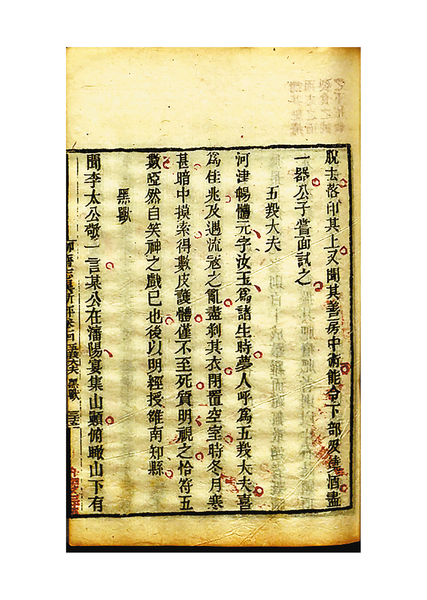 脫去落印其上又聞其善房中術能令下部吸燒酒盡
一器公子嘗面試之
五羖大夫
河津暢體元字汝玉爲諸生時夢人呼爲五羖大夫喜
爲佳兆及遇流寇之亂盡剥其衣閉置空室時冬月寒
甚暗中摸索得數皮護體僅不至死質明視之恰符五
數啞然自笑神之戲已也後以明經授雒南知縣
黑獸
聞李太公敬一言某公在瀋陽宴集山顚俯瞰山下有